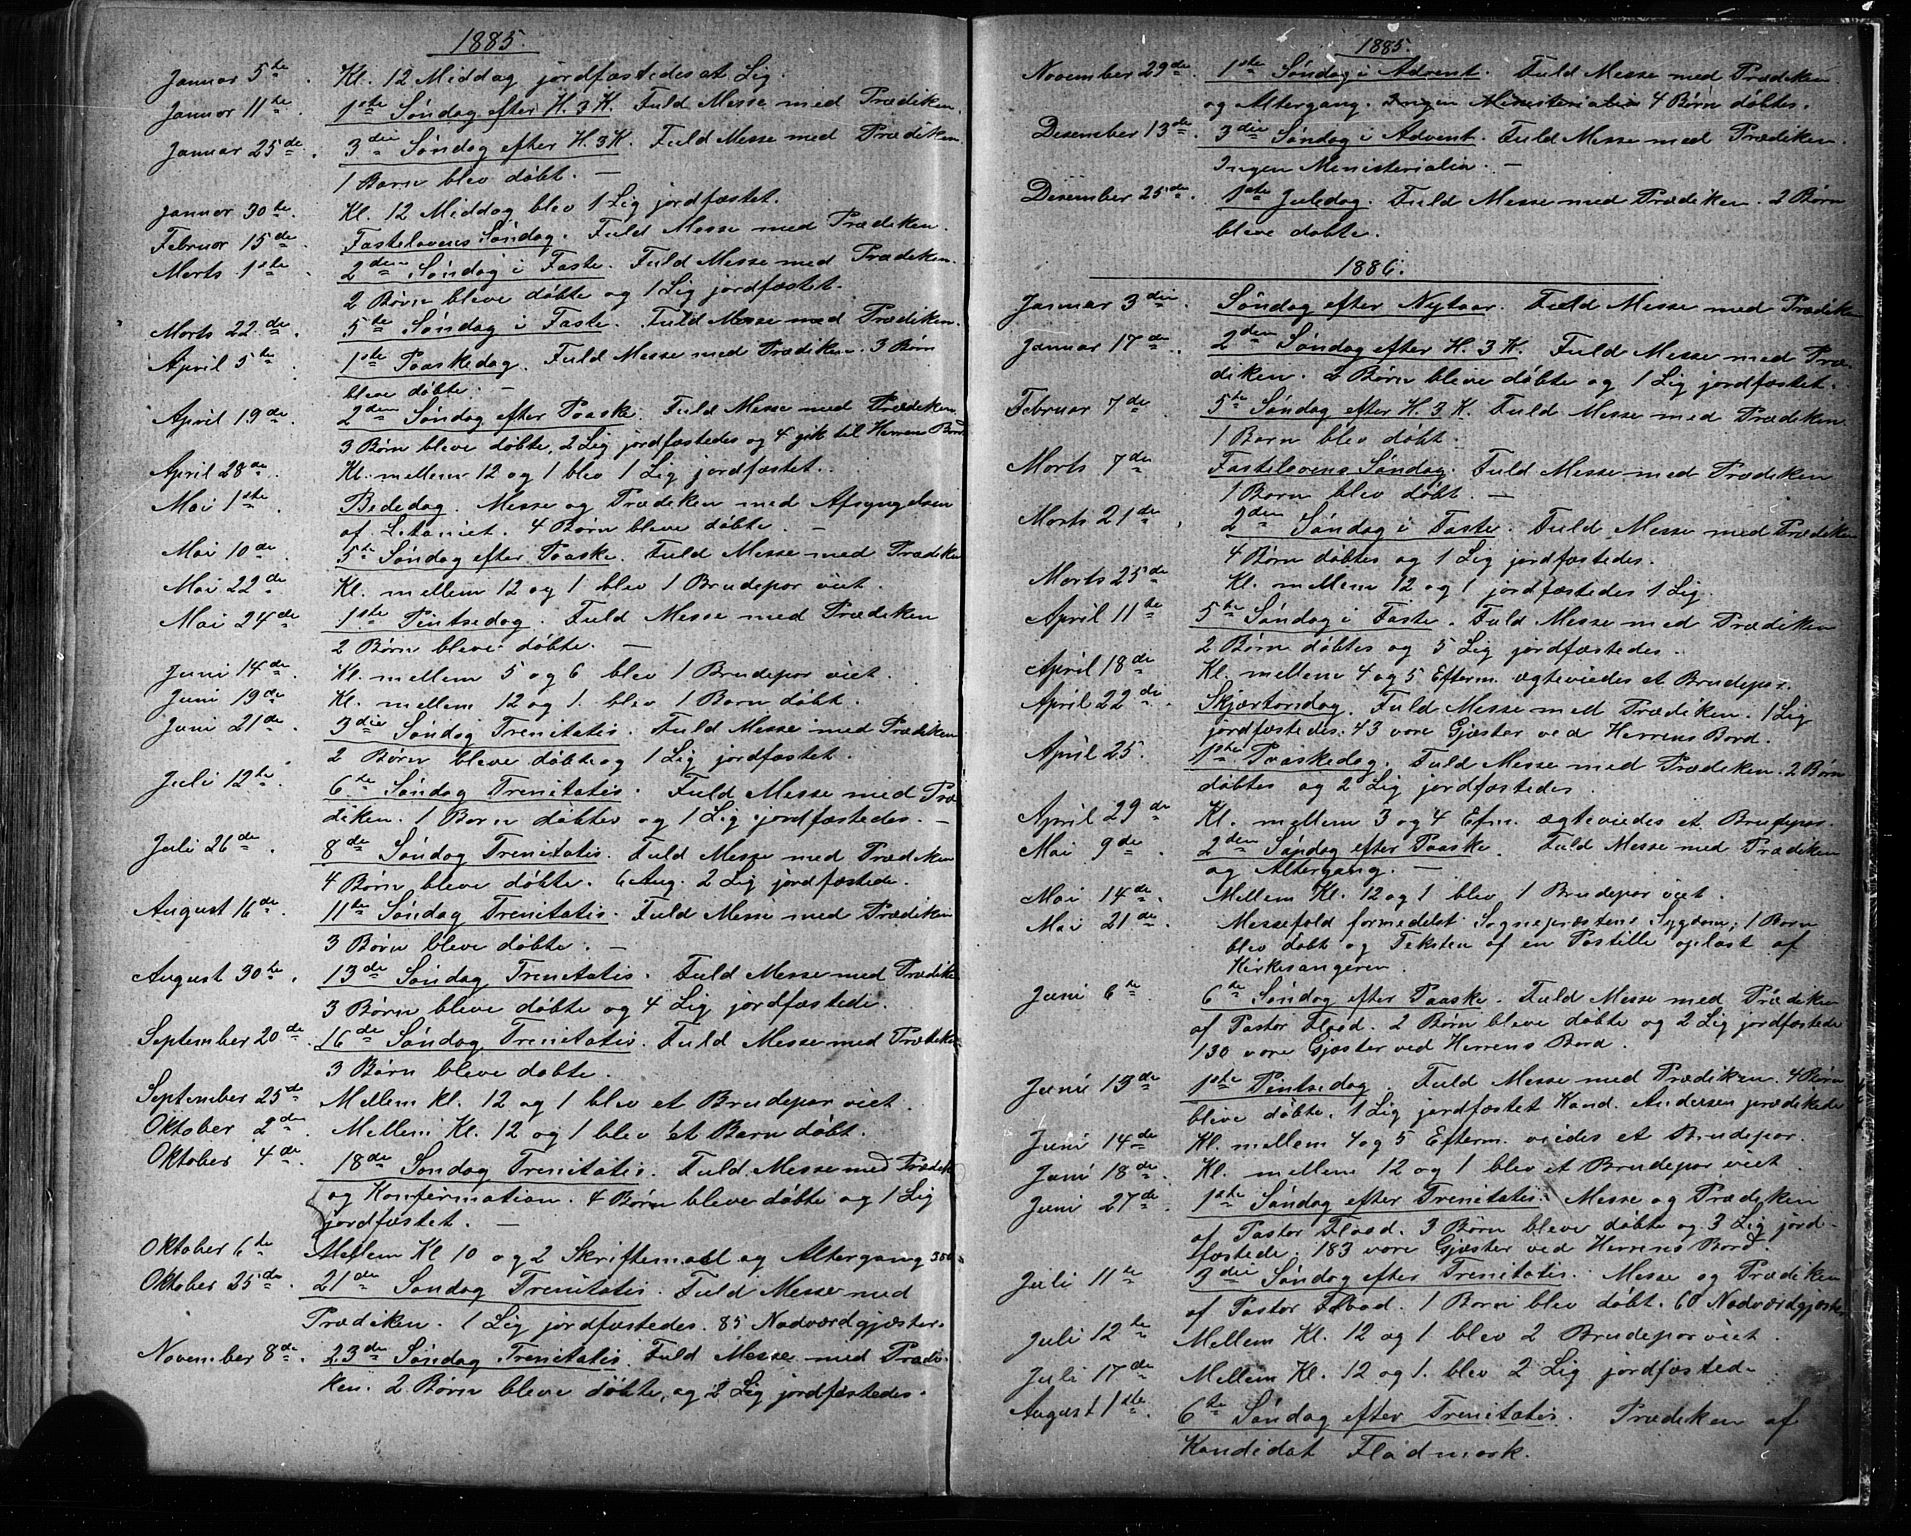 1885.
Januar 5te. Kl. 12 Middag jordfæstedes et Lig.
Januar 11te. 1ste Søndag efter H. 3 K. Fuld Messe med Prædiken.
Januar 25de. 3die Søndag efter H. 3 K. Fuld Messe med Prædiken.
1 Barn blev døbt. —
Januar 30te. Kl. 12 Middag blev 1 Lig jordfæstet.
Februar 15de. Fastelavens Søndag. Fuld Messe med Prædiken.
Marts 1ste. 2den Søndag i Faste. Fuld Messe med Prædiken.
2 Børn bleve døbte og 1 Lig jordfæstet.
Marts 22de. 5te Søndag i Faste. Fuld Messe med Prædiken.
April 5te. 1ste Paaskedag. Fuld Messe med Prædiken. 3 Børn
bleve døbte. —
April 19de. 2den Søndag efter Paaske. Fuld Messe med Prædiken.
3 Børn bleve døbte, 2 Lig jordfæstedes og 4 gik til Herrens Bord.
April 28de. Kl. mellem 12 og 1 blev 1 Lig jordfæstet.
Mai 1ste. Bededag. Messe og Prædiken med Afsyngelsen
af Litaniet. 4 Børn bleve døbte. —
Mai 10de. 5te Søndag efter Paaske. Fuld Messe med Prædiken
Mai 22de. Kl. mellem 12 og 1 blev 1 Brudepar viet.
Mai 24de. 1ste Pintsedag. Fuld Messe med Prædiken
2 Børn bleve døbte. —
Juni 14de. Kl. mellem 5 og 6 blev 1 Brudepar viet.
Juni 19de. Kl. mellem 12 og 1. blev 1 Barn døbt.
Juni 21de. 3die Søndag Trenitatis. Fuld Messe med Prædiken
2 Børn bleve døbte og 1 Lig jordfæstet.
Juli 12te. 6te Søndag Trenitatis. Fuld Messe med Præ-
diken. 1 Barn døbtes og 1 Lig jordfæstedes. —
Juli 26de. 8de Søndag Trenitatis. Fuld Messe med Prædiken
4 Børn bleve døbte. 6 Aug. 2 Lig jordfæstede.
August 16de. 11te Søndag Trenitatis. Fuld Messe med Prædiken
3 Børn bleve døbte. —
August 30te. 13de Søndag Trenitatis. Fuld Messe med Prædike
3 Børn bleve døbte og 4 Lig jordfæstede.
September 20de. 16de Søndag Trenitatis. Fuld Messe med Prædike
3 Børn bleve døbte.
September 25de Mellem Kl. 12 og 1 blev et Brudepar viet.
Oktober 2den Mellem Kl. 12 og 1 blev et Barn døbt.
Oktober 4de. 18de Søndag Trenitatis. Fuld Messe med Prædik
og Konfirmation. 4 Børn bleve døbte og 1 Lig
jordfæstet. —
Oktober 6te Mellem Kl 10 og 2 Skriftemaal og Altergang
Oktober 25de. 21de Søndag Trenitatis. Fuld Messe med
Prædiken. 1 Lig jordfæstedes. 85 Nadværdgjæster.
November 8de. 23de Søndag Trenitatis. Fuld Messe med Prædi-
ken. 2 Børn bleve døbte, og 2 Lig jordfæstedes.
1885.
November 29de. 1ste Søndag i Advent. Fuld Messe med Prædiken
og Altergang. Ingen Ministerialia 4 Børn døbtes.
Desember 13de. 3die Søndag i Advent. Fuld Messe med Prædiken.
Ingen Ministerialia. —
Desember 25de. 1ste Juledag. Fuld Messe med Prædiken. 2 Børn
bleve døbte.
1886.
Januar 3die. Søndag efter Nytaar. Fuld Messe med Prædiken
Januar 17de. 2den Søndag efter H. 3 K. Fuld Messe med Præ-
diken. 2 Børn bleve døbte og 1 Lig jordfæstet.
Februar 7de. 5te Søndag efter H. 3 K. Fuld Messe med Prædiken.
1 Barn blev døbt.
Marts 7de Fastelavens Søndag. Fuld Messe med Prædiken
1 Barn blev døbt. —
Marts 21de. 2den Søndag i Faste. Fuld Messe med Prædiken
4 Børn døbtes og 1 Lig jordfæstedes.
Marts 25de Kl. mellem 12 og 1 jordfæstedes 1 Lig.
April 11te 5te Søndag i Faste. Fuld Messe med Prædiken
2 Børn døbtes og 5 Lig jordfæstedes.
April 18de Kl. mellem 4 og 5 Efterm. ægteviedes et Brudepar.
April 22de. Skjærtorsdag. Fuld Messe med Prædiken. 1 Lig
jordfæstedes. 43 vare Gjæster ved Herrens Bord.
April 25. 1ste Paaskedag. Fuld Messe med Prædiken. 2 Børn
døbtes og 2 Lig jordfæstedes.
April 29de Kl. mellem 3 og 4 Efm. ægteviedes et Brudepar.
Mai 9de. 2den Søndag efter Paaske. Fuld Messe med Prædiken
og Altergang. —
Mai 14de. Mellem Kl. 12 og 1 blev 1 Brudepar viet.
Mai 21de. Messefald formedelst Sognepræstens Sygdom; 1 Barn
blev døbt og Teksten af en Postille oplæst af
Kirkesangeren.
Juni 6te. 6te Søndag efter Paaske. Fuld Messe med Prædiken
af Pastor Flood. 2 Børn bleve døbte og 2 Lig jordfæstede
130 vare Gjæster ved Herrens Bord.
Juni 13de 1ste Pintsedag. Fuld Messe med Prædiken. 4 Børn
bleve døbte. 1 Lig jordfæstet Kand. Andersen prædikede
Juni 14de Kl. mellem 4 og 5 Efterm. viedes et Brudepar.
Juni 18de. Kl. mellem 12 og 1 blev et Brudepar viet.
Juni 27de 1ste Søndag efter Trenitatis. Messe og Prædiken
af Pastor Flood. 3 Børn bleve døbte og 3 Lig jord-
fæstede. 183 vare Gjæster ved Herrens Bord.
Juli 11te 3die Søndag efter Trenitatis. Messe og Prædiken
af Pastor Flood. 1 Barn blev døbt. 60 Nadværdgjæster
Juli 12te Mellem Kl. 12 og 1. blev 2 Brudepar viet.
Juli 17de Mellem Kl. 12 og 1. blev 2 Lig jordfæstede
August 1ste. 6te Søndag efter Trenitatis. Prædiken af
Kandidat Fladmark.